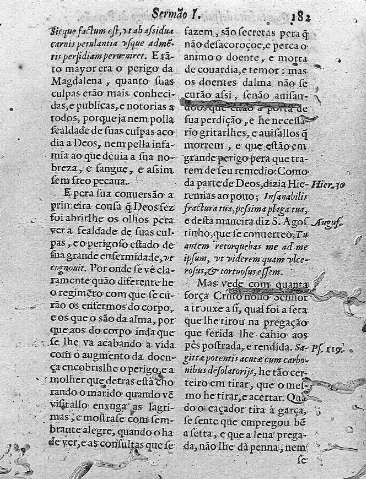 Sermão I.
182
Sic que factum est, vt ab assidua
carnis petulantia vsque ad mētis
perfidiam perueniret. E tã-
to mayor era o perigo da
Magdalena, quanto suas
culpas erão mais conheci-
das, e publicas, e notorias a
todos, porque ja nem polla
fealdade de suas culpas aco
dia a Deos, nem pella infa-
mia ao que deuia a sua no-
breza, e sangue, e assim
sem freo peccaua.
E pera sua conuersão a
primeira cousa q̃ Deos fez
foi abrirlhe os olhos pera
ver a fealdade de suas cul-
pas, e o perigoso estado de
sua grande enfermidade, vt
cognouit. Por onde se vè cla-
ramente quão differente he
o regimēto com que se cu-
rão os enfermos do corpo,
e os que o são da alma, por
que aos do corpo inda que
se lhe va acabando a vida
com o augmento da doen-
ça encobrislhe o perigo, e a
molher que detras está cho
rando o marido quando vē
visitallo enxuga as lagri-
mas, e mostrase com sem-
brante alegre, quando o ha
de ver, e as consultas que se
fazem, são secretas pera q̃
não desacoroçoe, e perca o
animo o doente, e morra
de couardia, e temor: mas
os doentes dalma não se
curão assi, senão auisan-
doos que estão á porta de
sua perdição, e he necessa-
rio gritarlhes, e auisallos q̃
morrem, e que estão em
grande perigo pera que tra-
rem de seu remedio: Como
da parte de Deos, dizia Hie-
remias ao pouo; Insanabilis
fractura tua, pessima plaga tua,
e desta maneira diz S. Agos
tinho, que se conuerteo, Tu
autem retorquebas me ad me
ipsum, vt viderem quam vlce-
rosus, & tortuosus essem.
Hier. 30
August.
Mas vede com quanta
força Christo nosso Senhor
a trouxe a si, qual foi a seta
que lhe tirou na pregação
que ferida lhe cahio aos
pès postrada, e rendida. Sa-
gittæ potentis acutæ cum carbo-
nibus desolatorijs, he tão cer-
teiro em tirar, que o mes-
mo he tirar, e acertar. Quã
do o caçador tira à garça,
se sente que empregou bē
a setta, e que a leua prega-
da, não lhe dà penna, nem
Ps. 119.
se